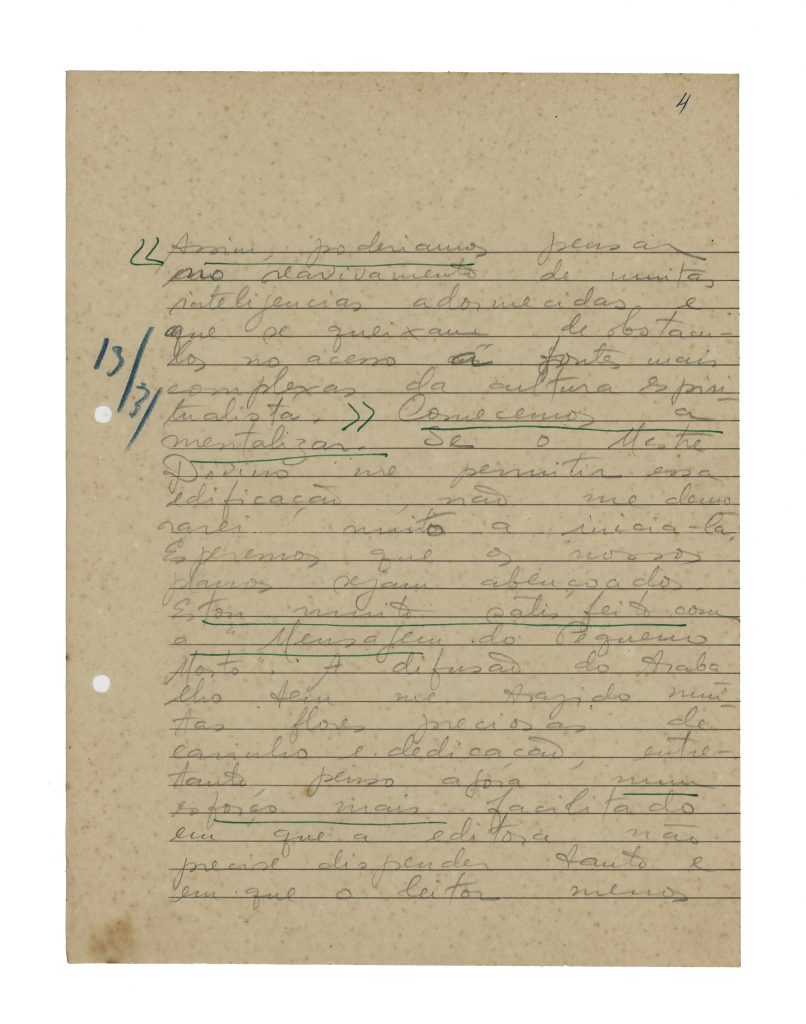 4
« Assim, poderiamos pensar
no reavivamento de muitas
inteligencias adormecidas e
que se queixam de obstacu-
los no acesso á fontes mais
complexas da cultura espiri-
tualista. » Comecemos a
13/31
mentalizar. Se o Mestre
Divino me permitir essa
edificação, não me demo
rarei muito a inicia-la.
Esperemos que os nossos
planos sejam abençoados.
Estou muito satisfeito com
a "Mensagem do Pequeno
Morto". A difusão do traba
lho tem me trazido mui
tas flores preciosas de
carinho e dedicação, entre-
tanto penso agora num
esforço mais facilitado
em que a editora não
precise dispender tanto e
em que o leitor menos